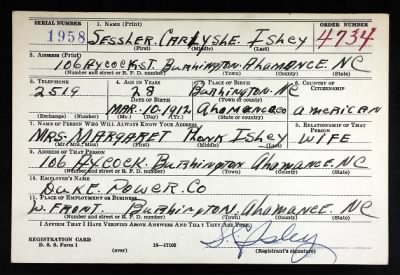 SERIAL NUMBER 1. NAME (Print) ORDER NUMBER
1958 SESSLER. CARLYSLE. ISLEY 4734
(First) (Middle) (Last)
2. ADDRESS (Print)
106 AYCOCK ST. BURLINGTON. ALAMANCE. NC
(Number and street or R. F. D. number) (Town) (County) (State)
3. TELEPHONE 4. AGE IN YEARS 5. PLACE OF BIRTH 6. COUNTRY OF CITIZENSHIP
2519 28 BURLINGTON. NC
DATE OF BIRTH (Town or county)
MAR. 10. 1912. ALAMANCE CO AMERICAN
(Exchange) (No.) (Mo.) (Day) (Yr.) (State or country)
7. NAME OF PERSON WHO WILL ALWAYS KNOW YOUR ADDRESS 8. RELATIONSHIP OF THAT PERSON
MRS. MARGARET ISLEY WIFE
(Mr., Mrs., Miss) (First) (Middle) (Last)
9. ADDRESS OF THAT PERSON
106 AYCOCK. BURLINGTON. ALAMANCE. NC
(Number and street or R. F. D. number) (Town) (County) (State)
10. EMPLOYER'S NAME
DUKE. POWER. CO
11. PLACE OF EMPLOYMENT OR BUSINESS
W. FRONT. BURLINGTON. ALAMANCE. NC
(Number and street or R. F. D. number) (Town) (County) (State)
I AFFIRM THAT I HAVE VERIFIED ABOVE ANSWERS AND THAT THEY ARE TRUE.
REGISTRATION CARD
D. S. S. Form 1 (over) 16-17105 S. C. Isley
(Registrant's signature)